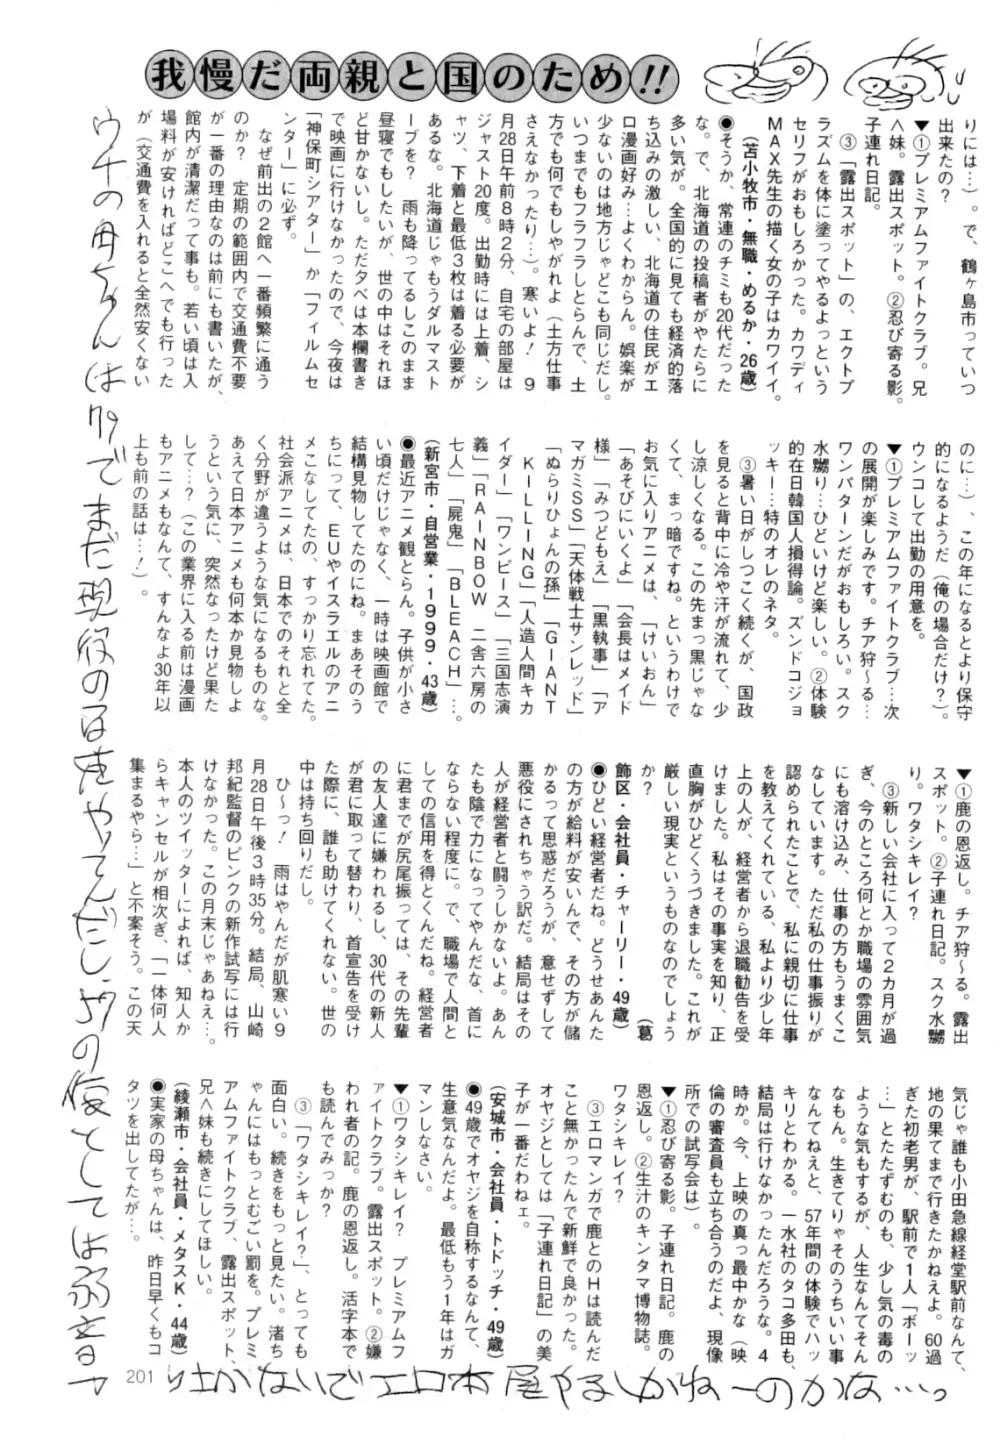 我慢だ両親と国のため!!
りには…)。で、鶴ヶ島市っていつ
出来たの?
▼①プレミアムファイトクラブ。兄
<妹。露出スポット。②忍び寄る影。
子連れ日記。
③「露出スポット」の、エクトプ
ラズムを体に塗ってやるよっという
セリフがおもしろかった。カワディ
MAX先生の描く女の子はカワイイ。
(苫小牧市・無職・めるか・26歳)
●そうか、常連のチミも20代だった
な。で、北海道の投稿者がやたらに
多い気が。全国的に見ても経済的落
ち込みの激しい、北海道の住民がエ
ロ漫画好み…よくわからん。娯楽が
少ないのは地方じゃどこも同じだし。
いつまでもフラフラしとらんで、土
方でも何でもしやがれ(土方仕事
さえなかったり…)。寒いよ! 9
月28日午前8時2分、自宅の部屋は
ジャスト20度。出勤時には上着、シ
ャツ、下着と最低3枚は着る必要が
あるな。北海道じゃもうダルマスト
ーブを? 雨も降ってるしこのまま
昼寝でもしたいが、世の中はそれほ
ど甘かないし。ただ夕べは本欄書き
で映画に行けなかったので、今夜は
「神保町シアター」か「フィルムセ
ンター」に必ず。
なぜ前出の2館へ一番頻繁に通う
のか? 定期の範囲内で交通費不要
が一番の理由なのは前にも書いたが、
館内が清潔だって事も。若い頃は入
場料が安ければどこへでも行った
が(交通費を入れると全然安くない
のに…)、この年になるとより保守
的になるようだ(俺の場合だけ?)。
ウンコして出勤の用意を。
▼①プレミアムファイトクラブ…次
の展開が楽しみです。チア狩〜る…
ワンパターンだがおもしろい。スク
水嬲り…ひどいけど楽しい。②体験
的在日韓国人損得論。ズンドコジョ
ッキー…特のオレのネタ。
③暑い日がしつこく続くが、国政
を見ると背中に冷や汗が流れて、少
し涼しくなる。この先まっ黒じゃな
くて、まっ暗ですね。というわけで
お気に入りアニメは、「けいおん」
「あそびにいくよ」「会長はメイド
様」「みつどもえ」「黒執事」「ア
マガミSS」「天体戦士サンレッド」
「ぬらりひょんの孫」「GIANT
KILLING」「人造人間キカ
イダー」「ワンピース」「三国志演
義」「RAINBOW 二舎六房の
七人」「屍鬼」「BLEACH」…。
(新宮市・自営業・1999・43歳)
●最近アニメ観とらん。子供が小さ
い頃だけじゃなく、一時は映画館で
結構見物してたのにね。まあそのう
ちにって、EUやイスラエルのアニ
メこなしてたの、すっかり忘れてた。
社会派アニメは、日本でのそれと全
く分野が違うような気になるものな。
あえて日本アニメも何本か見物しよ
うという気に、突然なったけど果た
して…?(この業界に入る前は漫画
もアニメもなんて、すんなよ30年以
上も前の話は…!)。
▼①鹿の恩返し。チア狩〜る。露出
スポット。②子連れ日記。スク水嬲
り。ワタシキレイ?
③新しい会社に入って2カ月が過
ぎ、今のところ何とか職場の雰囲気
にも溶け込み、仕事の方もうまくこ
なしています。ただ私の仕事振りが
認められたことで、私に親切に仕事
を教えてくれている、私より少し年
上の人が、経営者から退職勧告を受
けました。私はその事実を知り、正
直胸がひどくうづきました。これが
厳しい現実というものなのでしょう
か?
(葛
飾区・会社員・チャーリー・49歳)
●ひどい経営者だね。どうせあんた
の方が給料が安いんで、その方が儲
かるって思惑だろうが、意せずして
悪役にされちゃう訳だ。結局はその
人が経営者と闘うしかないよ。あん
たも陰で力になってやんだな、首に
ならない程度に。で、職場で人間と
しての信用を得とくんだね。経営者
に君までが尻尾振っては、その先輩
の友人達に嫌われるし、30代の新人
が君に取って替わり、首宣告を受け
た際に、誰も助けてくれない。世の
中は持ち回りだし。
ひ〜っ! 雨はやんだが肌寒い9
月28日午後3時35分。結局、山崎
邦紀監督のピンクの新作試写には行
けなかった。この月末じゃあねえ…。
本人のツイッターによれば、知人か
らキャンセルが相次ぎ、「一体何人
集まるやら…」と不案そう。この天
気じゃ誰も小田急線経堂駅前なんて、
地の果てまで行きたかねえよ。60過
ぎた初老男が、駅前で1人「ボーッ
…」とたたずむのも、少し気の毒の
ような気もするが、人生なんてそん
なもん。生きてりゃそのうちいい事
なんてねえと、57年間の体験でハッ
キリとわかる。一水社のタコ多田も、
結局は行けなかったんだろうな。4
時か。今、上映の真っ最中かな(映
倫の審査員も立ち合うのだよ、現像
所での試写会は)。
▼①忍び寄る影。子連れ日記。鹿の
恩返し。②生汁のキンタマ博物誌。
ワタシキレイ?
③エロマンガで鹿とのHは読んだ
こと無かったんで新鮮で良かった。
オヤジとしては「子連れ日記」の美
子が一番だわねェ。
(安城市・会社員・トドッチ・49歳)
●49歳でオヤジを自称するなんて、
生意気なんだよ。最低もう1年はガ
マンしなさい。
▼①ワタシキレイ? プレミアムフ
ァイトクラブ。露出スポット。②嫌
われ者の記。鹿の恩返し。活字本で
も読んでみっか?
③「ワタシキレイ?」、とっても
面白い。続きをもっと見たい。渚ち
ゃんにはもっとむごい罰を。プレミ
アムファイトクラブ、露出スポット、
兄<妹も続きにしてほしい。
(綾瀬市・会社員・メタスK・44歳)
●実家の母ちゃんは、昨日早くもコ
タツを出してたが…。
ウチの母ちゃんは79でまだ現役の百姓やってんだし、57の俺としては弱音
吐かないでエロ本屋やるしかねーのかな…っ
201